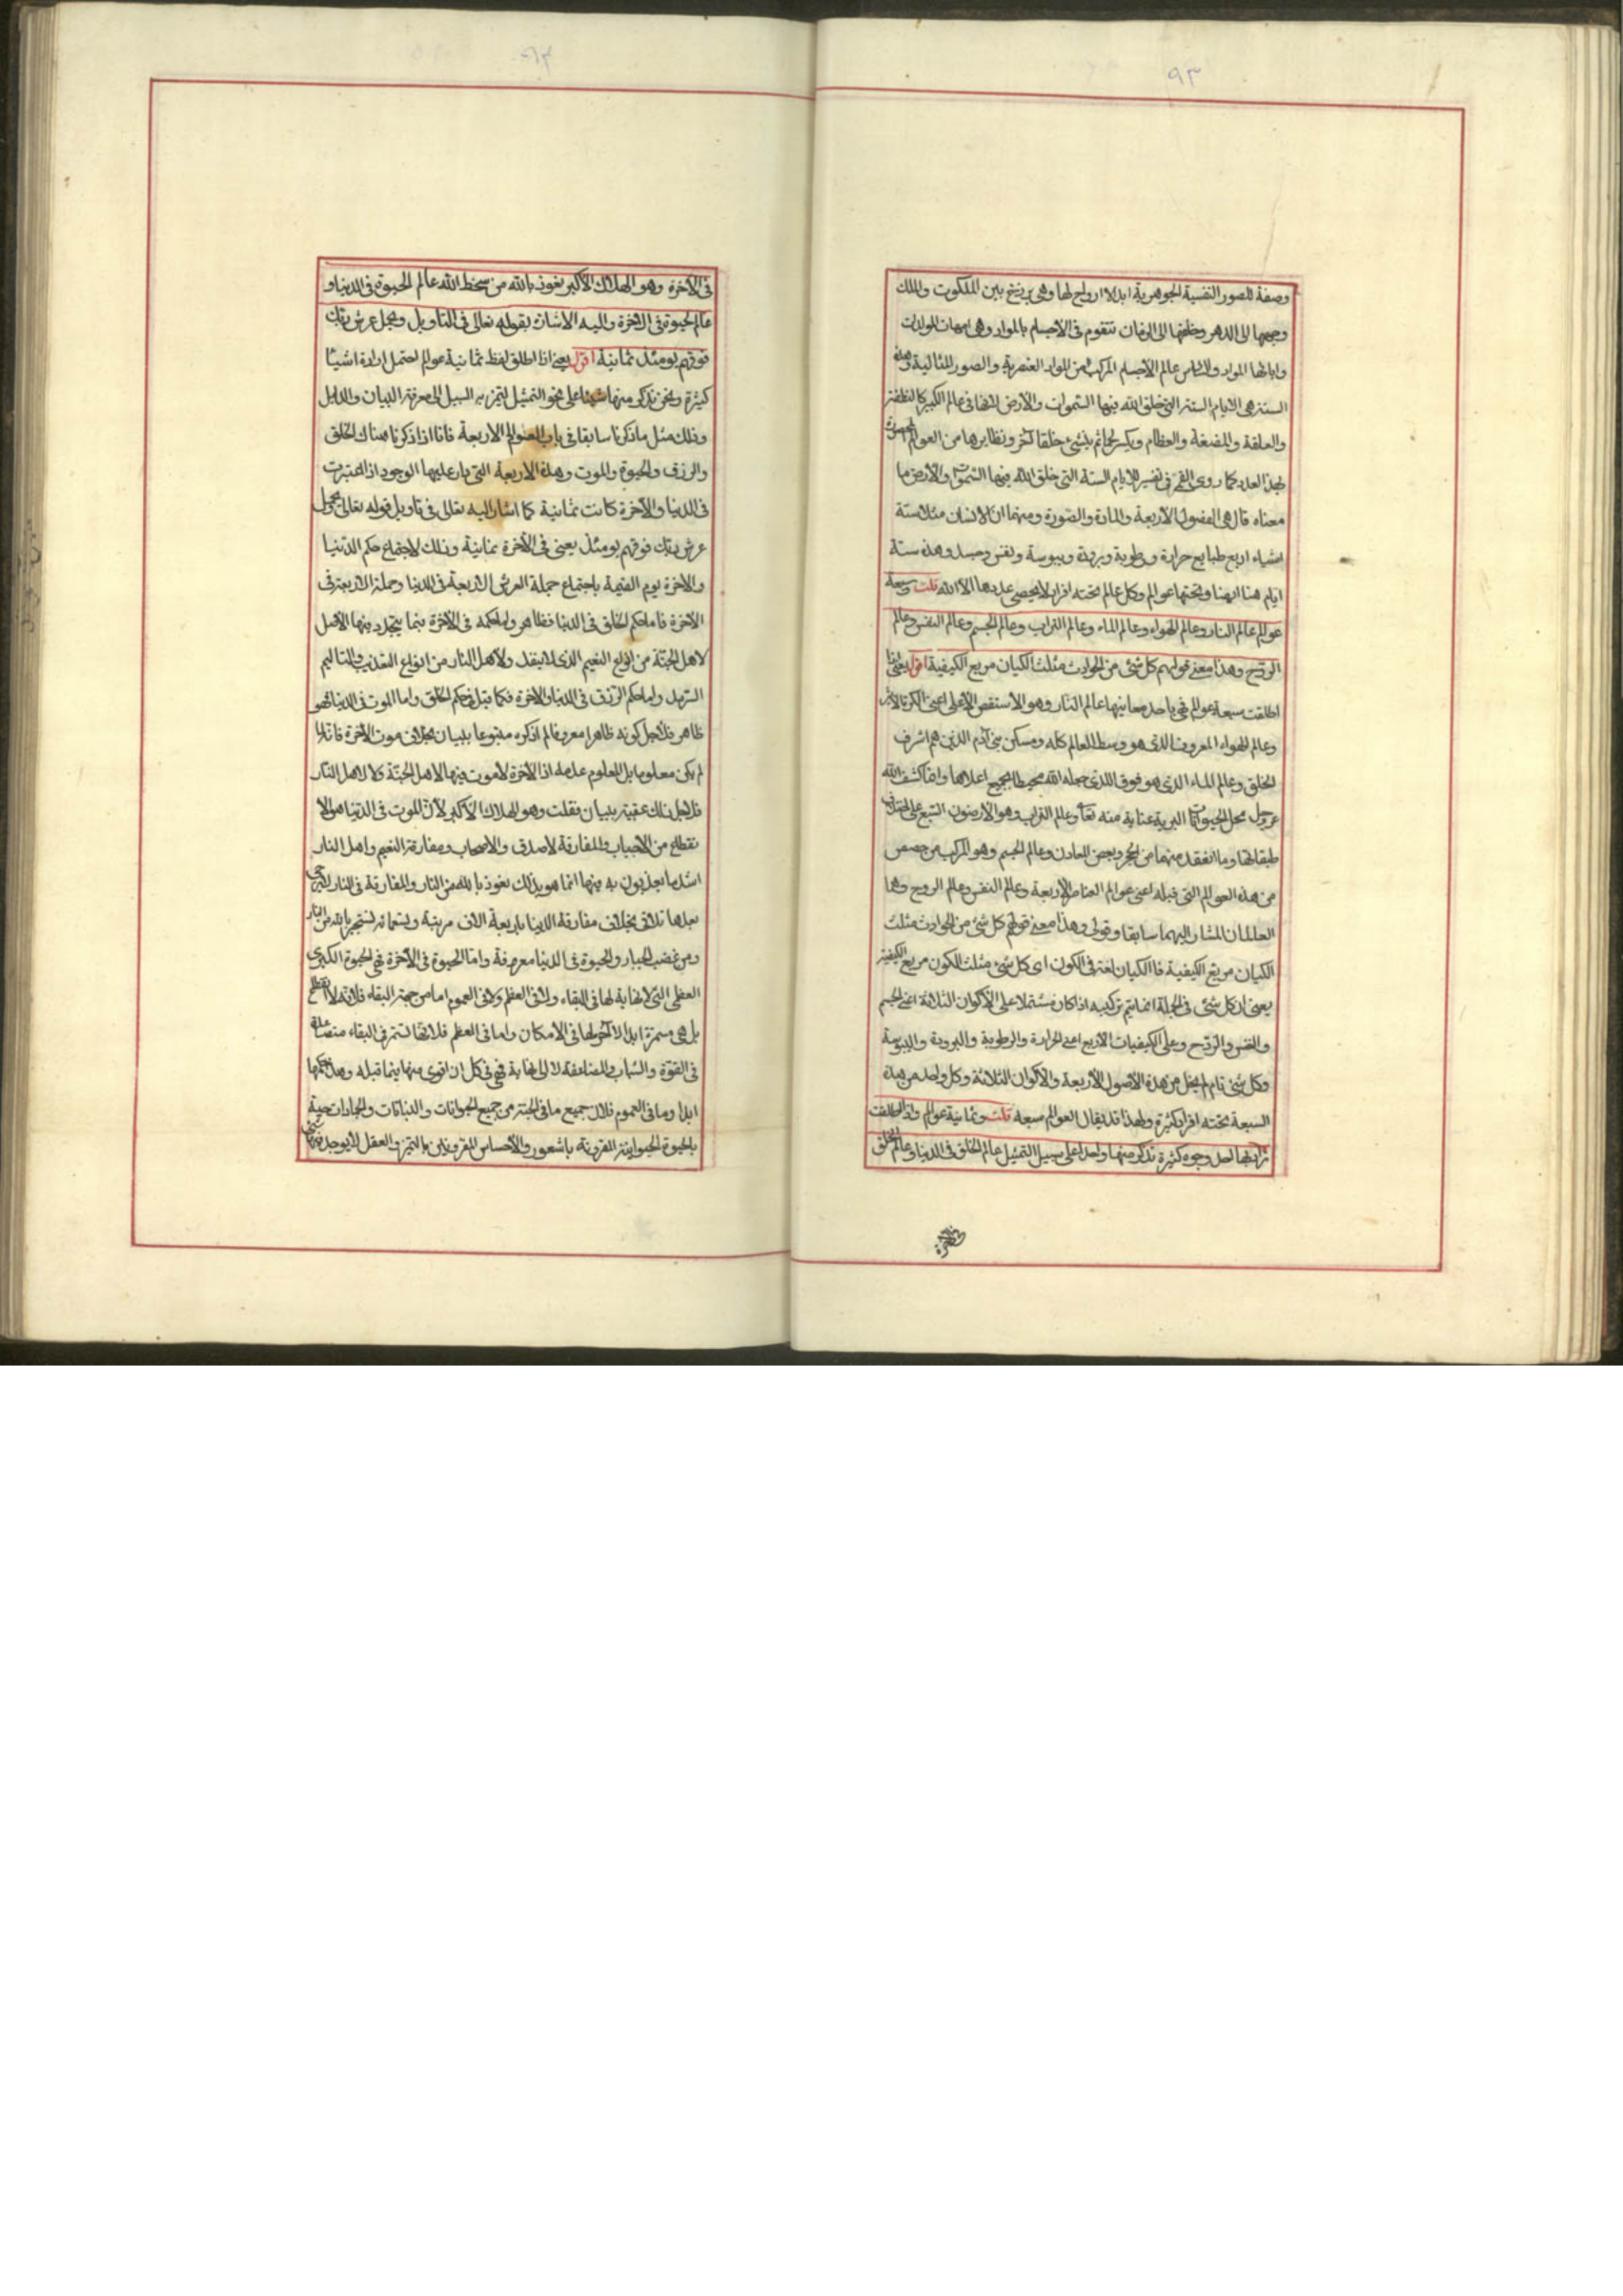 ٩٣
وصفة للصور النفسية الجوهرية ابدا لا ارواح لها وهي برزخ بين الملكوت والملك
وجهها الى الدهر وخلفها الى الزمان تتقوم في الاجسام بالمواد وهي امهات المولدات
واباؤها المواد والسادس عالم الأجسام المركب من المواد العنصرية والصور المثالية وهذه
الستة هي الايام الستة التي خلق الله فيها السموات والأرض لانها في عالم الكبير كالنطفة
والعلقة والمضغة والعظام ويكسى لحما ثم ينشئ خلقا آخر ونظايرها من العوالم
بهذا العدد كما روى القمي في تفسير الايام الستة التي خلق الله فيها السموات والأرض ما
معناه قال هي الفصول الأربعة والمادة والصورة ومنها ان الانسان مثلا ستة
اشياء اربع طبايع حرارة ورطوبة وبرودة ويبوسة ونفس وجسد وهذه ستة
ايام هنا وتحتها عوالم وكل عالم تحته افراد لا يحصي عددها الا الله قلت وسبعة
عوالم عالم النار وعالم الهواء وعالم الماء وعالم التراب وعالم الجسم وعالم النفس وعالم
الروح وهذا معنى قولهم كل شئ من الحوادث مثلث الكيان مربع الكيفية اقول يعني اذا
اطلقت سبعة عوالم فهي باحد معانيها عالم النار وهو الاستقص الأعلى اعني الكرة الأثير
وعالم الهواء المعروف الذي هو وسط العالم كله ومسكن بني آدم الذين هم اشرف
الخلق وعالم الماء الذي هو فوق الذي جعله الله محيطا بجميع اعلاها وانما كشف الله
عز وجل محل الحيوانات البرية عناية منه تعا وعالم التراب وهو الارضون السبع على اختلاف
طبقاتها وما انعقد منها من الحجر وبعض المعادن وعالم الجسم وهو المركب من حصص
من هذه العوالم التي قبله اعني عوالم العناصر الأربعة وعالم النفس وعالم الروح وهما
العالمان المشار اليهما سابقا وقولي وهذا معنى قولهم كل شئ من الحوادث مثلث
الكيان مربع الكيفية فالكيان لغة في الكون اي كل شئ مثلث الكون مربع الكيفية
يعني ان كل شئ في الجملة انما يتم تركيبه اذا كان مشتملا على الأكوان الثلاثة اعني الجسم
والنفس والروح وعلى الكيفيات الأربع اعني الحرارة والرطوبة والبرودة واليبوسة
وكل شئ تام لم يخل من هذه الأصول الأربعة والأكوان الثلاثة وكل واحد من هذه
السبعة تحته افراد كثيرة ولهذا قد يقال العوالم سبعة قلت وثمانية عوالم واذا اطلقت
يراد بها احد وجوه كثيرة نذكر منها واحدا على سبيل التمثيل عالم الخلق في الدنيا وعالم الخلق
في الآخرة وهو الهلاك الأكبر نعوذ بالله من سخط الله عالم الحيوة في الدنيا و
عالم الحيوة في الآخرة واليه الاشارة بقوله تعالى في التأويل ويحمل عرش ربك
فوقهم يومئذ ثمانية اقول يعني اذا اطلق لفظ ثمانية عوالم احتمل ارادة اشياء
كثيرة ونحن نذكر منها شيئا على نحو التمثيل لتميز به السبيل الى معرفة البيان والدليل
وذلك مثل ما ذكرنا سابقا في باب العوالم الاربعة فانا اذا ذكرنا هناك الخلق
والرزق والحيوة والموت وهذه الاربعة التي يدار عليها الوجود اذا اعتبرت
في الدنيا والآخرة كانت ثمانية كما اشار اليه تعالى في تأويل قوله تعالى ويحمل
عرش ربك فوقهم يومئذ يعني في الآخرة ثمانية وذلك لاجتماع حكم الدنيا
والآخرة يوم القيمة باجتماع حملة العرش الاربعة في الدنيا وحملة الاربعة في
الآخرة فاما حكم الخلق في الدنيا فظاهر واما حكمه في الآخرة بما يتجدد فيها الأكل
لاهل الجنة من انواع النعيم الذي لا ينفد ولاهل النار من انواع التعذيب والتأليم
السرمد واما حكم الرزق في الدنيا والآخرة فكما قبل في حكم الخلق واما الموت في الدنيا فهو
ظاهر فلأجل كونه ظاهرا معروفا لم اذكره متبوعا ببيان بخلاف موت الآخرة فانه لما
لم يكن معلوما بل المعلوم عدمه اذ الآخرة لا موت فيها لا لاهل الجنة ولا لاهل النار
فلاجل ذلك عقبته ببيان فقلت وهو الهلاك الأكبر لأن الموت في الدنيا هو الا
نقطاع من الأحباب والمفارقة لأصدق والاصحاب ومفارقة النعيم واهل النار
اشد ما يعذبون به فيها انما هو بذلك نعوذ بالله من النار والمفارقة في النار التي
بعدها تلاق بخلاف مفارقة الدنيا باربعة الاف مرتبة
ومن غضب الجبار والحيوة في الدنيا معروفة واما الحيوة في الآخرة فهي الحيوة الكبرى
العظمى التي لا نهاية لها في البقاء ولا في العظم ولا في العموم اما من جهة البقاء فلانه لا انقطاع
بل هي مستمرة ابدا لا آخر لها في الامكان واما في العظم فلانها تستمر في البقاء متصاعدة
في القوة والشباب والمضاعفة لا الى نهاية فهي في كل ان اقوى منها فيما قبله وهذا حكمها
ابدا وما في العموم فلأن جميع ما في الجنة من جميع الحيوانات والنباتات والجمادات حية
بالحيوة الحيوانية المقرونة بالشعور والأحساس المقرونين بالتميز والعقل لا يوجد